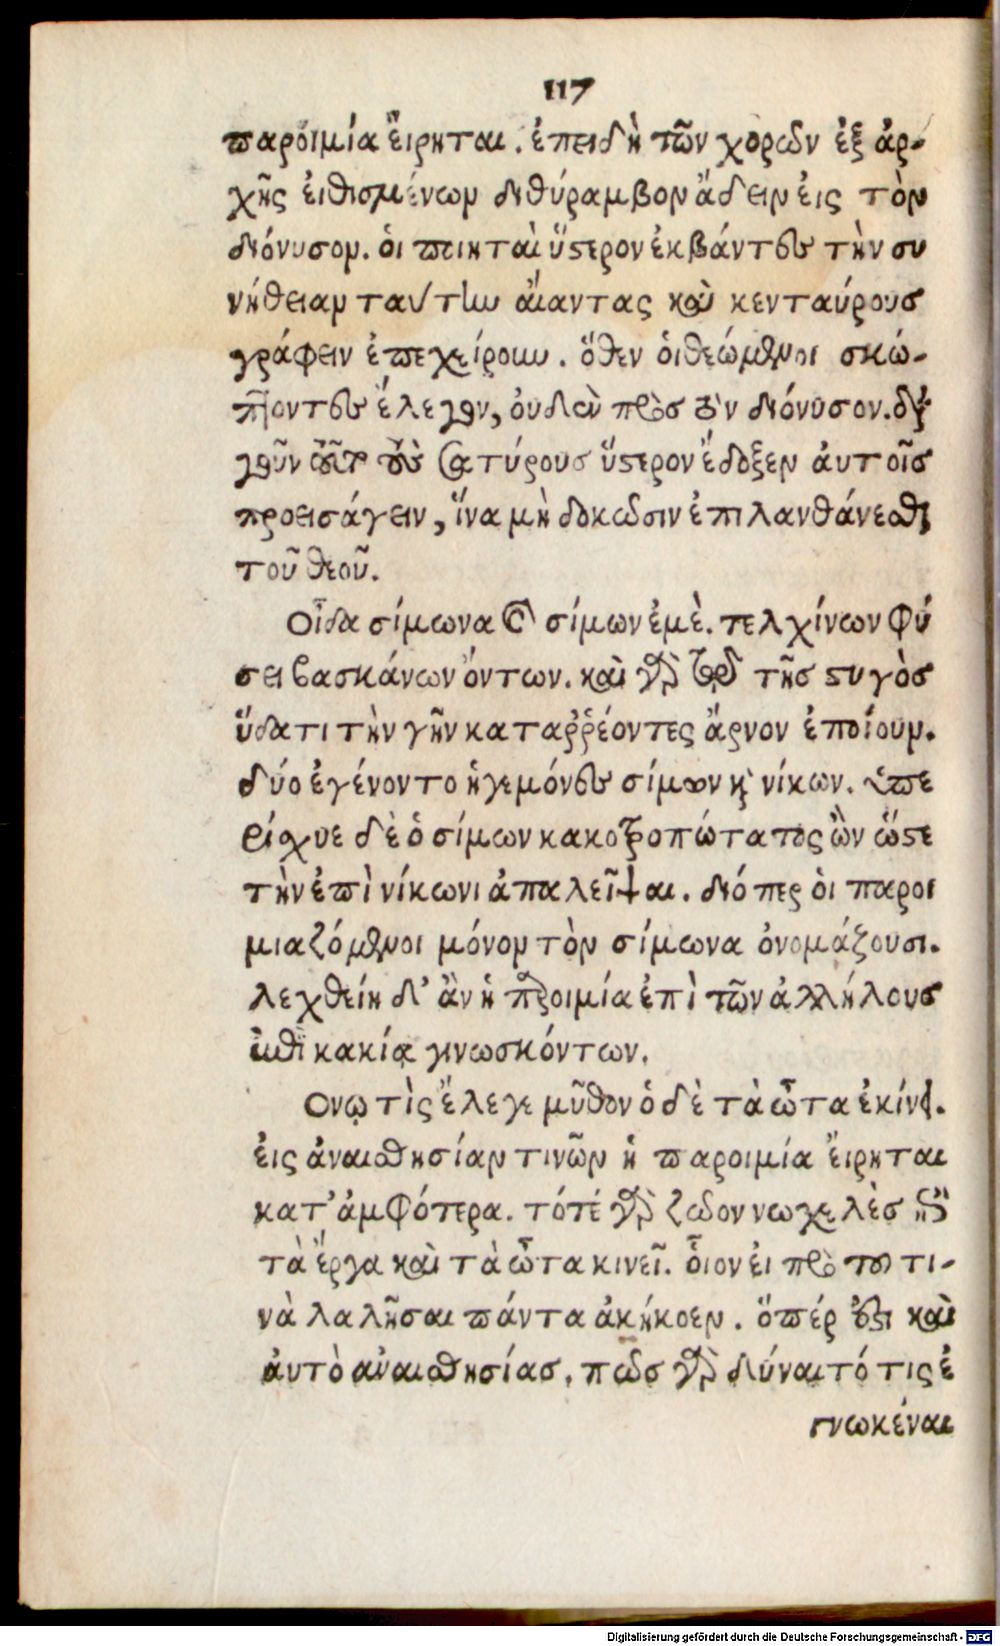 117
παροιμία εἴρηται. ἐπειδὴ τῶν χορῶν ἐξ ἀρ-
χῆς ἐιθισμένων διθύραμβον ἄδειν ἐις τὸν
διόνυσον. ὁι ποιηταὶ ὕστερον ἐκβάντες τὴν συ
νήθειαν ταύτην ἄιαντας καὶ κενταύρους
γράφειν ἐπεχείρουν. ὅθεν ὁι θεώμενοι σκώ-
πτοντες ἔλεγον, ὀυδὲν πρὸς τὸν διόνυσον. διὰ
γοῦν τοῦτο τοὺς σατύρους ὕστερον ἔδοξεν ἀυτοῖς
προεισάγειν, ἵνα μὴ δοκῶσιν ἐπιλανθάνεσθαι
τοῦ θεοῦ.
Οἶδα σίμωνα καὶ σίμων ἐμὲ. τελχίνων φύ
σει βασκάνων ὄντων. καὶ γὰρ τῷ τῆς στυγὸς
ὕδατι τὴν γῆν καταῤῥέοντες ἄρνον ἐποίουν.
δύο ἐγένοντο ἡγεμόνες σίμων καὶ νίκων. ὑπε
ρίσχυε δὲ ὁ σίμων κακοτροπώτατος ὢν ὥστε
τὴν ἐπὶ νίκωνι ἀπαλεῖψαι. διόπερ ὁι παροι
μιαζόμενοι μόνον τὸν σίμωνα ὀνομάζουσι.
λεχθείη δ' ἂν ἡ παροιμία ἐπὶ τῶν ἀλλήλους
ἐπὶ κακίᾳ γινωσκόντων.
Ονῳ τὶς ἔλεγε μῦθον ὁ δὲ τὰ ὦτα ἐκίνει.
ἐις ἀναισθησίαν τινῶν ἡ παροιμία ἔιρηται
κατ' ἀμφότερα. τότέ γὰρ ζῶον νωχελὲς
τὰ ἔργα καὶ τὰ ὦτα κινεῖ. οἷον ἐι πρὸ τοῦ τι-
νὰ λαλῆσαι πάντα ἀκήκοεν. ὅπέρ ἐστι καὶ
ἀυτὸ ἀναισθησίας. πῶς γὰρ δύναιτό τις ἐ
γνωκέναι
Digitalisierung gefördert durch die Deutsche Forschungsgemeinschaft - DFG